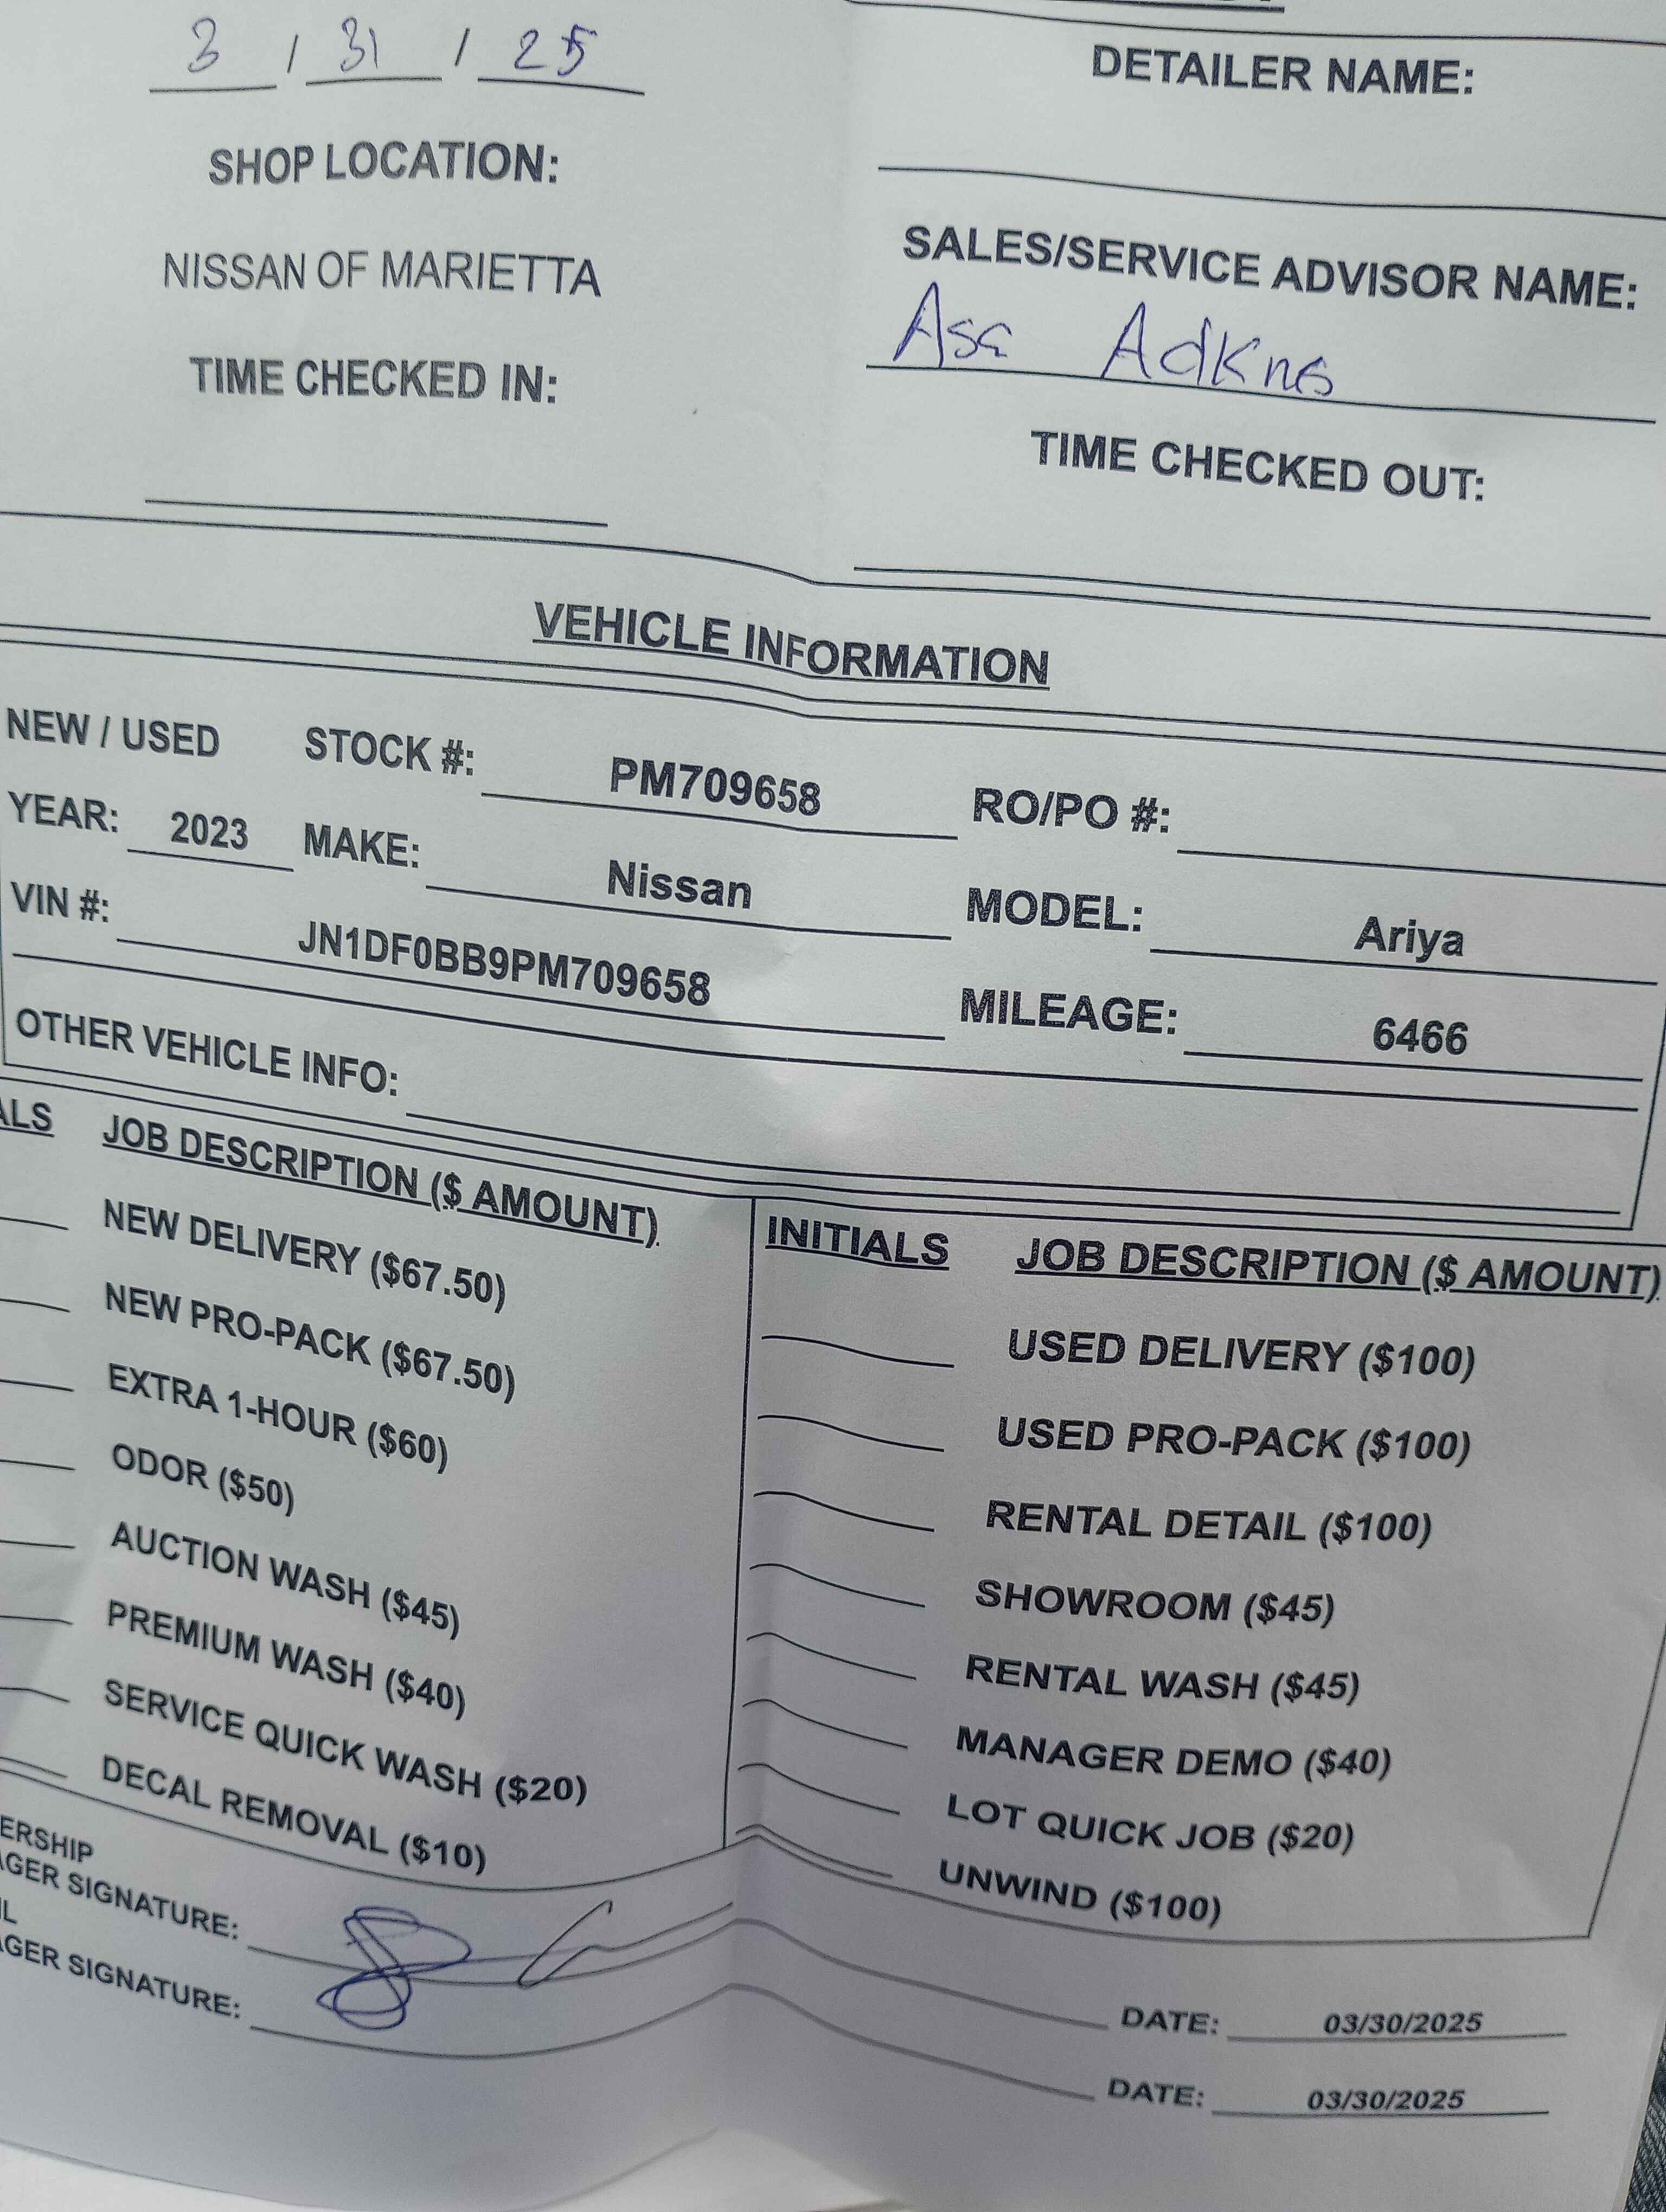 3 / 31 / 25
DETAILER NAME:
SHOP LOCATION:
NISSAN OF MARIETTA
SALES/SERVICE ADVISOR NAME:
Asa Adkns
TIME CHECKED IN:
TIME CHECKED OUT:
VEHICLE INFORMATION
NEW / USED STOCK #: PM709658 RO/PO #:
YEAR: 2023 MAKE: Nissan MODEL: Ariya
VIN #: JN1DF0BB9PM709658 MILEAGE: 6466
OTHER VEHICLE INFO:
ALS JOB DESCRIPTION ($ AMOUNT)
NEW DELIVERY ($67.50)
NEW PRO-PACK ($67.50)
EXTRA 1-HOUR ($60)
ODOR ($50)
AUCTION WASH ($45)
PREMIUM WASH ($40)
SERVICE QUICK WASH ($20)
DECAL REMOVAL ($10)
INITIALS JOB DESCRIPTION ($ AMOUNT)
USED DELIVERY ($100)
USED PRO-PACK ($100)
RENTAL DETAIL ($100)
SHOWROOM ($45)
RENTAL WASH ($45)
MANAGER DEMO ($40)
LOT QUICK JOB ($20)
UNWIND ($100)
ERSHIP
AGER SIGNATURE: DATE: 03/30/2025
IL
AGER SIGNATURE: DATE: 03/30/2025